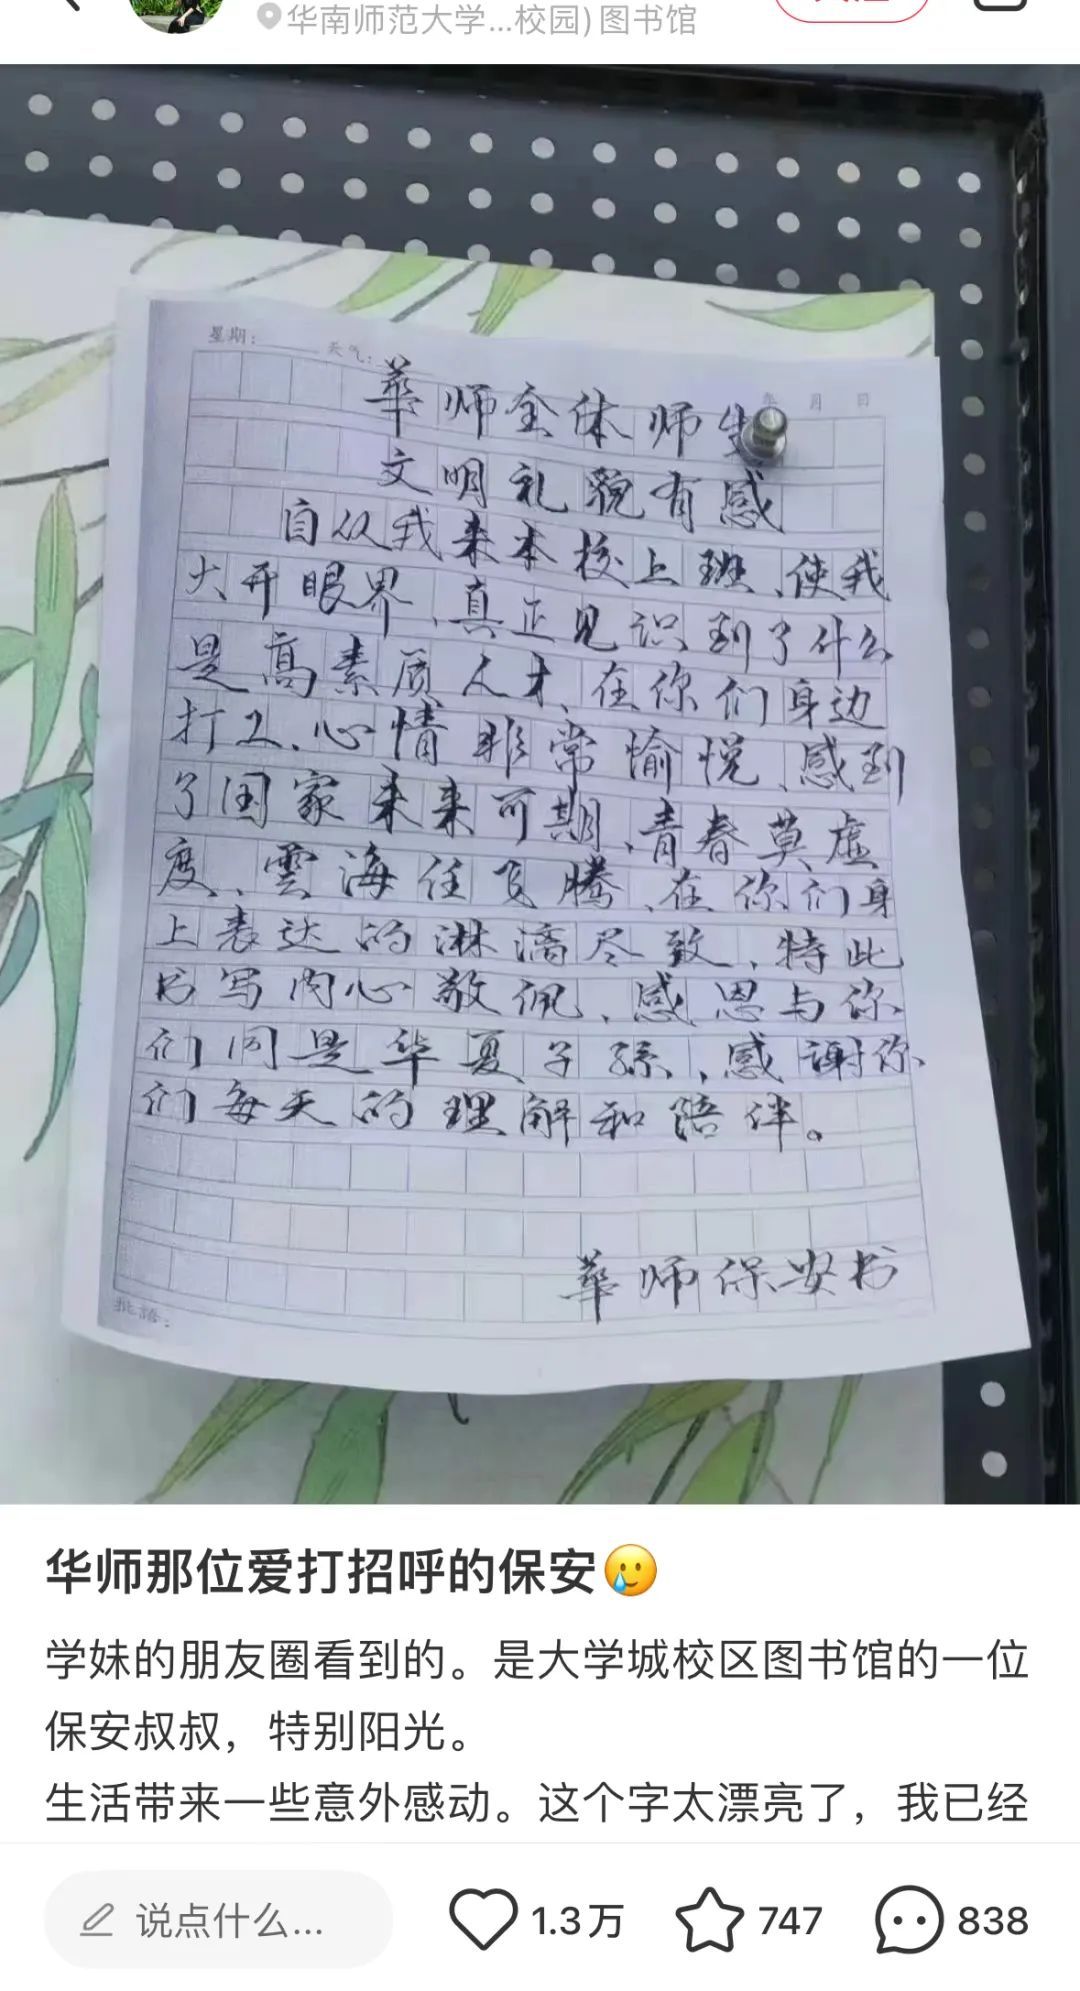 华南师范大学...校园)图书馆
星期：
天气：
年 月 日
華师全体师生
文明礼貌有感
自从我来本校上班、使我
大开眼界、真正见识到了什么
是高素质人才、在你们身边
打工、心情非常愉悦、感到
了国家未来可期、青春莫虚
度、雲海任飞腾、在你们身
上表达的淋漓尽致、特此
书写内心敬佩、感恩与你
们同是华夏子孫、感谢你
们每天的理解和陪伴。
華师保安书
批語：
华师那位爱打招呼的保安🥲
学妹的朋友圈看到的。是大学城校区图书馆的一位
保安叔叔，特别阳光。
生活带来一些意外感动。这个字太漂亮了，我已经
说点什么...
1.3万
747
838